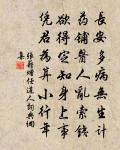 長安多病無生計
藥鋪醫人亂索錢
欲得定知身上事
凭君為算小行年
張籍贈任道人詞典網
集